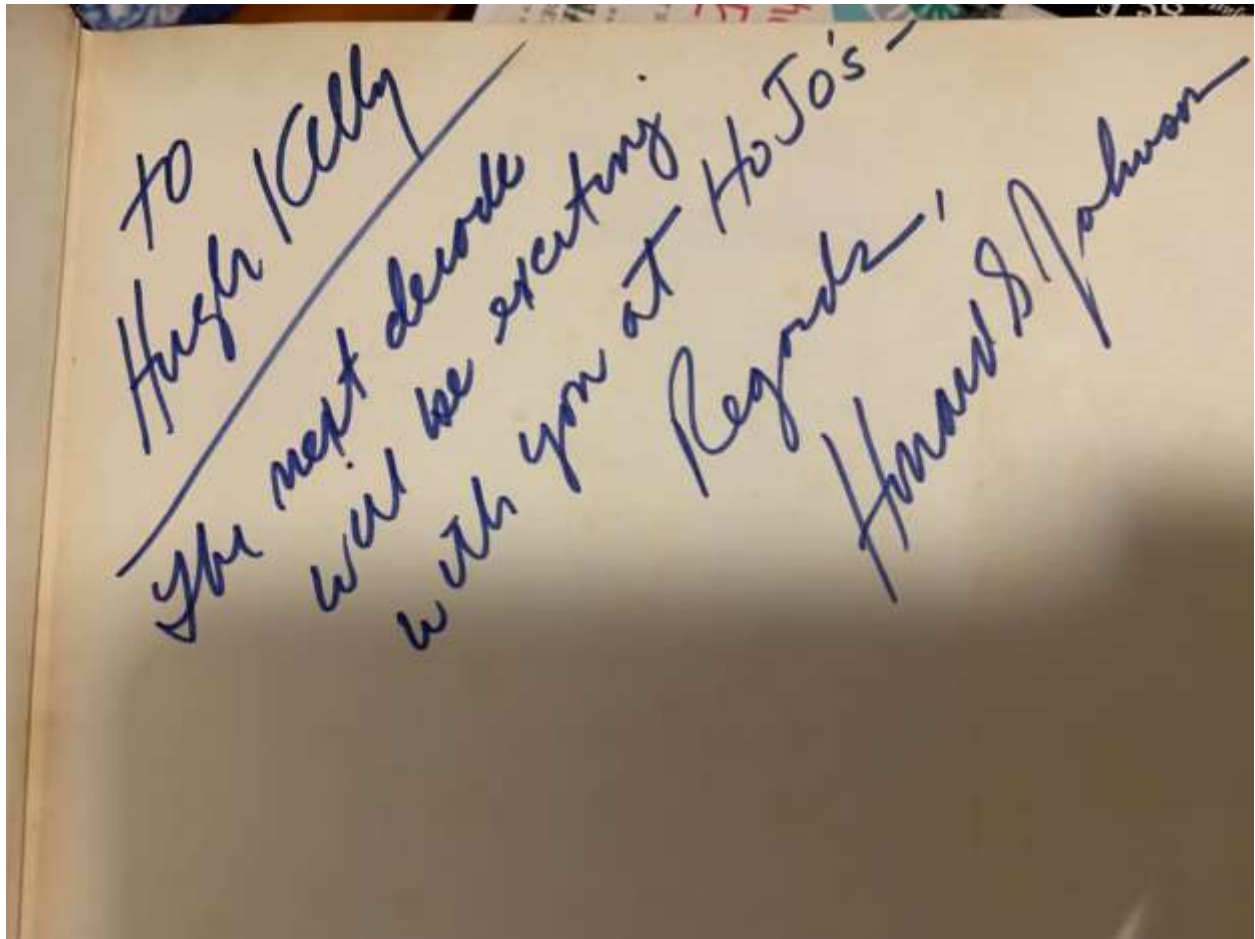 to
Hugh Kelly
The next decade
will be exciting
with you at HoJo's -
Regards,
Howard B Johnson